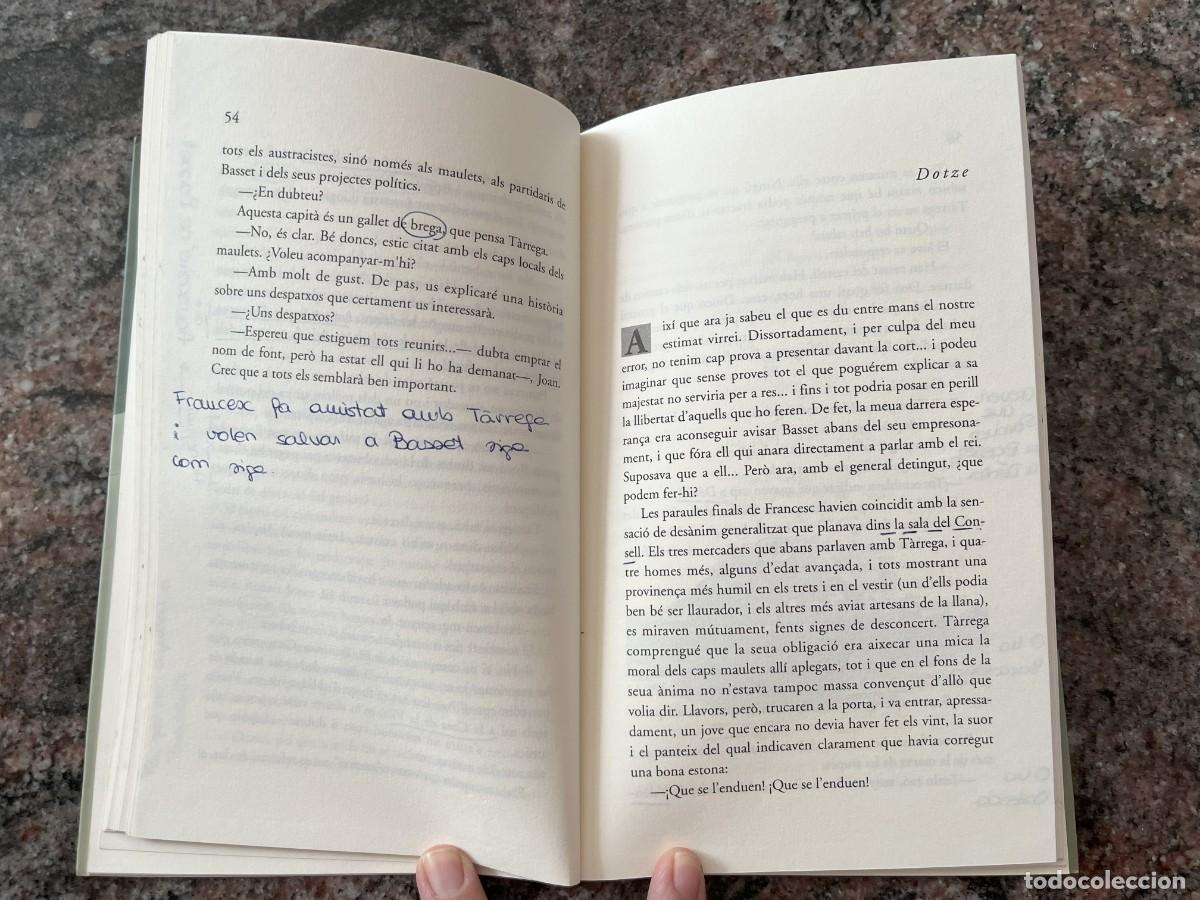 54
tots els austracistes, sinó només als maulets, als partidaris de
Basset i dels seus projectes polítics.
—¿En dubteu?
Aquesta capità és un gallet de brega, que pensa Tàrrega.
—No, és clar. Bé doncs, estic citat amb els caps locals dels
maulets. ¿Voleu acompanyar-m'hi?
—Amb molt de gust. De pas, us explicaré una història
sobre uns despatxos que certament us interessarà.
—¿Uns despatxos?
—Espereu que estiguem tots reunits...— dubta emprar el
nom de font, però ha estat ell qui li ho ha demanat—, Joan.
Crec que a tots els semblarà ben important.
Francesc fa amistat amb Tàrrega
i volen salvar a Basset siga
com siga.
Dotze
Així que ara ja sabeu el que es du entre mans el nostre
estimat virrei. Dissortadament, i per culpa del meu
error, no tenim cap prova a presentar davant la cort... i podeu
imaginar que sense proves tot el que poguérem explicar a sa
majestat no serviria per a res... i fins i tot podria posar en perill
la llibertat d'aquells que ho feren. De fet, la meua darrera espe-
rança era aconseguir avisar Basset abans del seu empresona-
ment, i que fóra ell qui anara directament a parlar amb el rei.
Suposava que a ell... Però ara, amb el general detingut, ¿que
podem fer-hi?
Les paraules finals de Francesc havien coincidit amb la sen-
sació de desànim generalitzat que planava dins la sala del Con-
sell. Els tres mercaders que abans parlaven amb Tàrrega, i qua-
tre homes més, alguns d'edat avançada, i tots mostrant una
provinença més humil en els trets i en el vestir (un d'ells podia
ben bé ser llaurador, i els altres més aviat artesans de la llana),
es miraven mútuament, fents signes de desconcert. Tàrrega
comprengué que la seua obligació era aixecar una mica la
moral dels caps maulets allí aplegats, tot i que en el fons de la
seua ànima no n'estava tampoc massa convençut d'allò que
volia dir. Llavors, però, trucaren a la porta, i va entrar, apressa-
dament, un jove que encara no devia haver fet els vint, la suor
i el panteix del qual indicaven clarament que havia corregut
una bona estona:
—¡Que se l'enduen! ¡Que se l'enduen!
todocoleccion